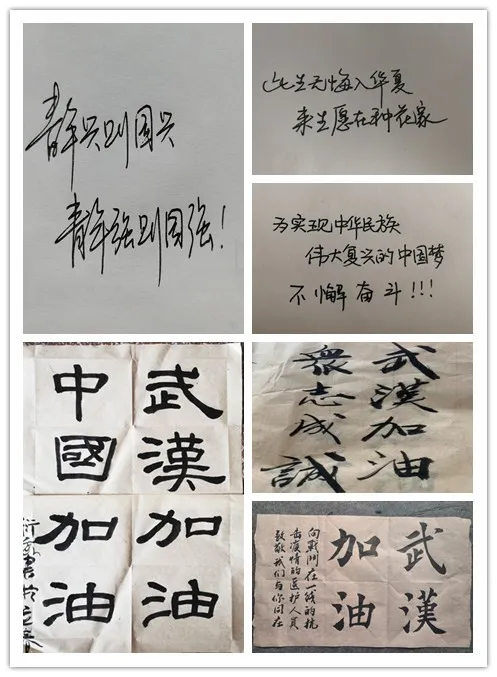 青年兴则国兴
青年强则国强！
此生无悔入华夏
来生愿在种花家
为实现中华民族
伟大复兴的中国梦
不懈奋斗!!!
武漢加油
中國加油
武漢加油
衆志成誠
武漢
加油
向戰鬥在一线的抗
击疫情的医护人员
致敬我们与你同在